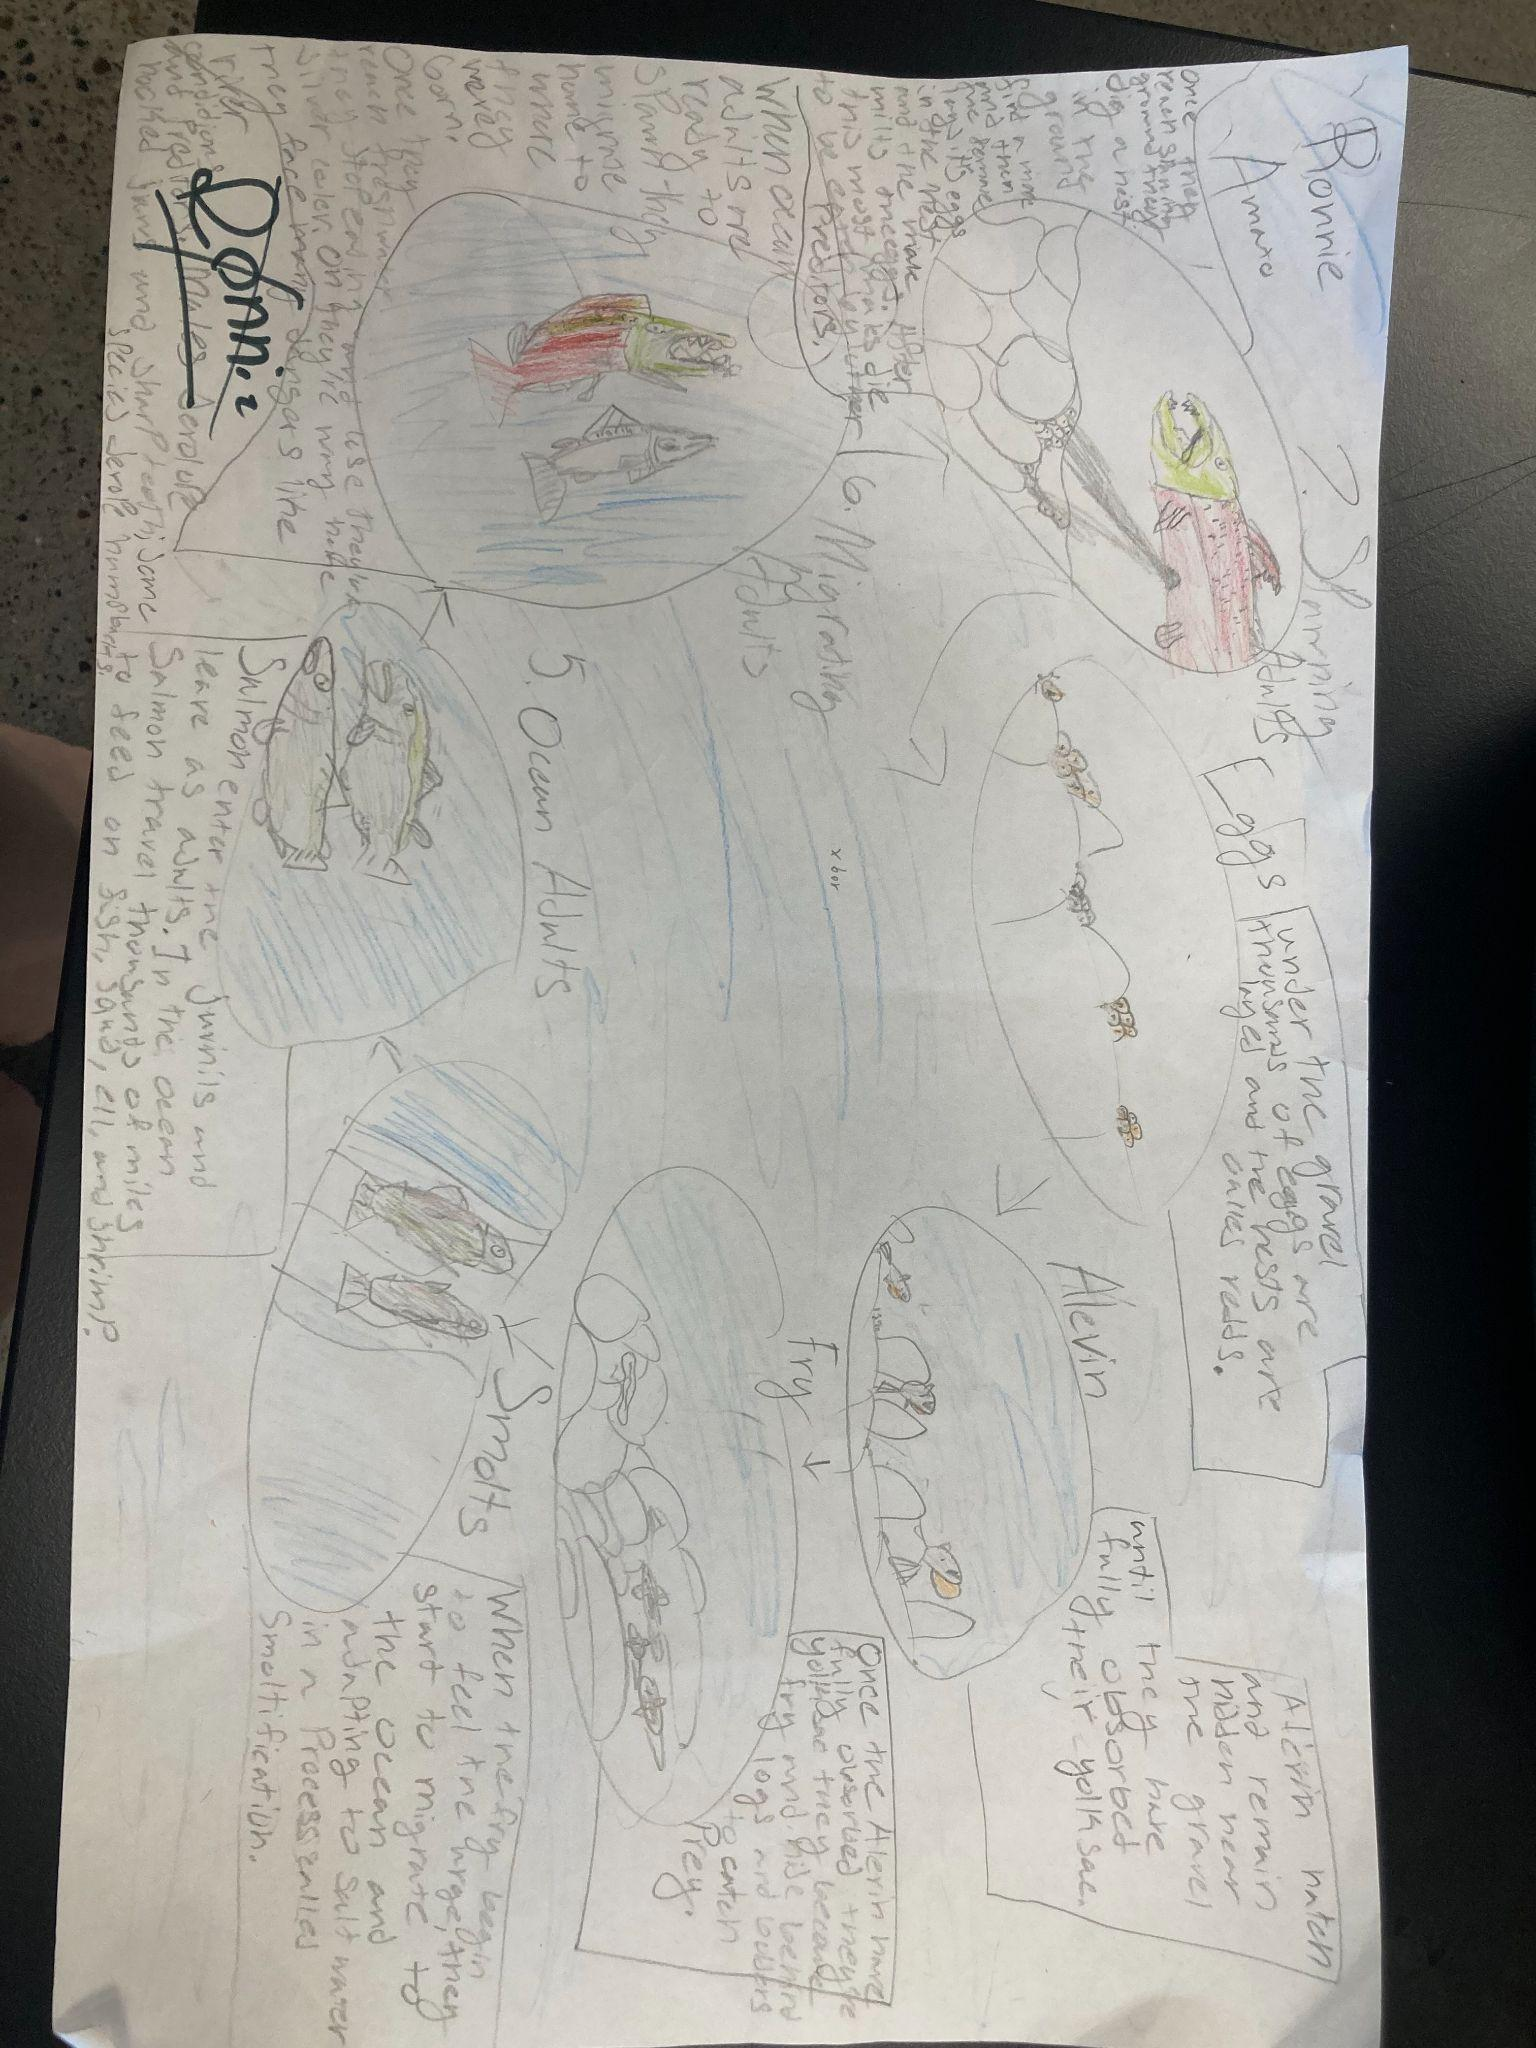 Ronnie
Amato
7. Spawning
Adults
once they
reach spawning
ground they
dig a nest
in the
ground
find a mate
and then
the female
lays its eggs
in the nest
and the male
milts the eggs. After
this most males die
to be eaten by other
preditors.
Eggs
under the gravel
thousands of eggs are
layed and the nests are
calles redds.
Alevin
Alevin hatch
and remain
hidden near
the gravel
until they have
fully obsorbed
their yolk sac.
fry
Once the Alevin have
fully obsorbed they're
yolksac they become
fry and hide behind
logs and bolders
to catch
Prey.
Smolts
When the fry begin
to feel the urge, then
start to migrate to
the ocean and
adapting to salt water
in a Process calles
Smoltification.
5. Ocean Adults
Salmon enter the juvnils and
leave as adults. In the ocean
Salmon travel thousands of miles
to feed on fish, squid, ell, and shrimp.
6. Migrating
Adults
When ocean
adults are
ready to
spawn they
migrate
home to
where
they
were
born.
Once they
reach freshwater
they stop eating and use they're
silver color. On they're way home
they face many dangers like
river
conditions
and preditors. Males develope
hooked jaws and sharp teeth; some
species develope humpbacks.
Ronnie
x bor